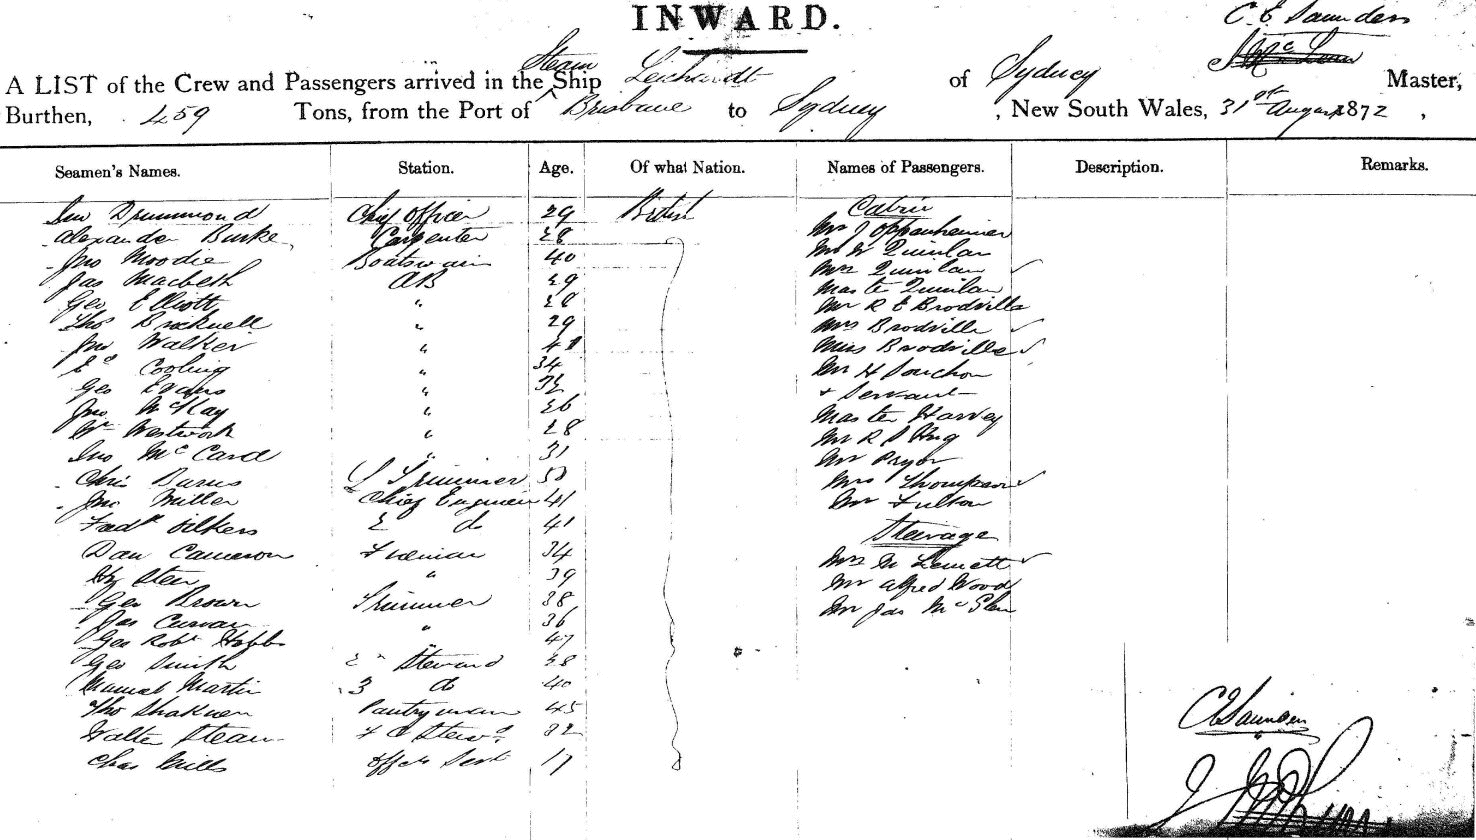 INWARD.
C E Saunders
A LIST of the Crew and Passengers arrived in the Steam Ship Leichardt of Sydney Master,
Burthen, 459 Tons, from the Port of Brisbane to Sydney, New South Wales, 31st August 1872,
Seamen's Names. Station. Age. Of what Nation. Names of Passengers. Description. Remarks.
Drummond Chief Officer 29 British Cabin
Alexander Burke Carpenter 28 Mr J Oppenheimer
Jno Moodie Boatswain 40 Mr W Quinlan
Jas Macbeth AB 29 Mrs Quinlan
Geo Elliott " 28 Master Quinlan
Thos Bricknell " 29 Mr R E Brodville
Jno Walker " Mrs Brodville
Ed Cooling " 34 Miss Brodville
Geo Evans " 32 Mr H Souchon
Jno McKay " 26 + Servant
Wm " 28 Master Harvey
Jno McCard " 31 Mr R S
Chris Barns Trimmer 50 Mr Pryor
Jno Miller Chief Engineer 41 Mrs Thompson
Fredk 2 do 41 Mr Fulton
Dan Cameron Fireman 34 Steerage
Hy Steer " 39 Mrs
Geo Brown Trimmer 38 Mr Alfred Wood
Jas Curran " 36 Mr Jas Mc
Geo Robt Hobbs " 47
Geo Smith 2nd Steward 28
Manuel Martin 3 do 40
Tho Pantryman 45
Walter F C Stewd 32
Chas Mills Offrs Servt 17
C E Saunders